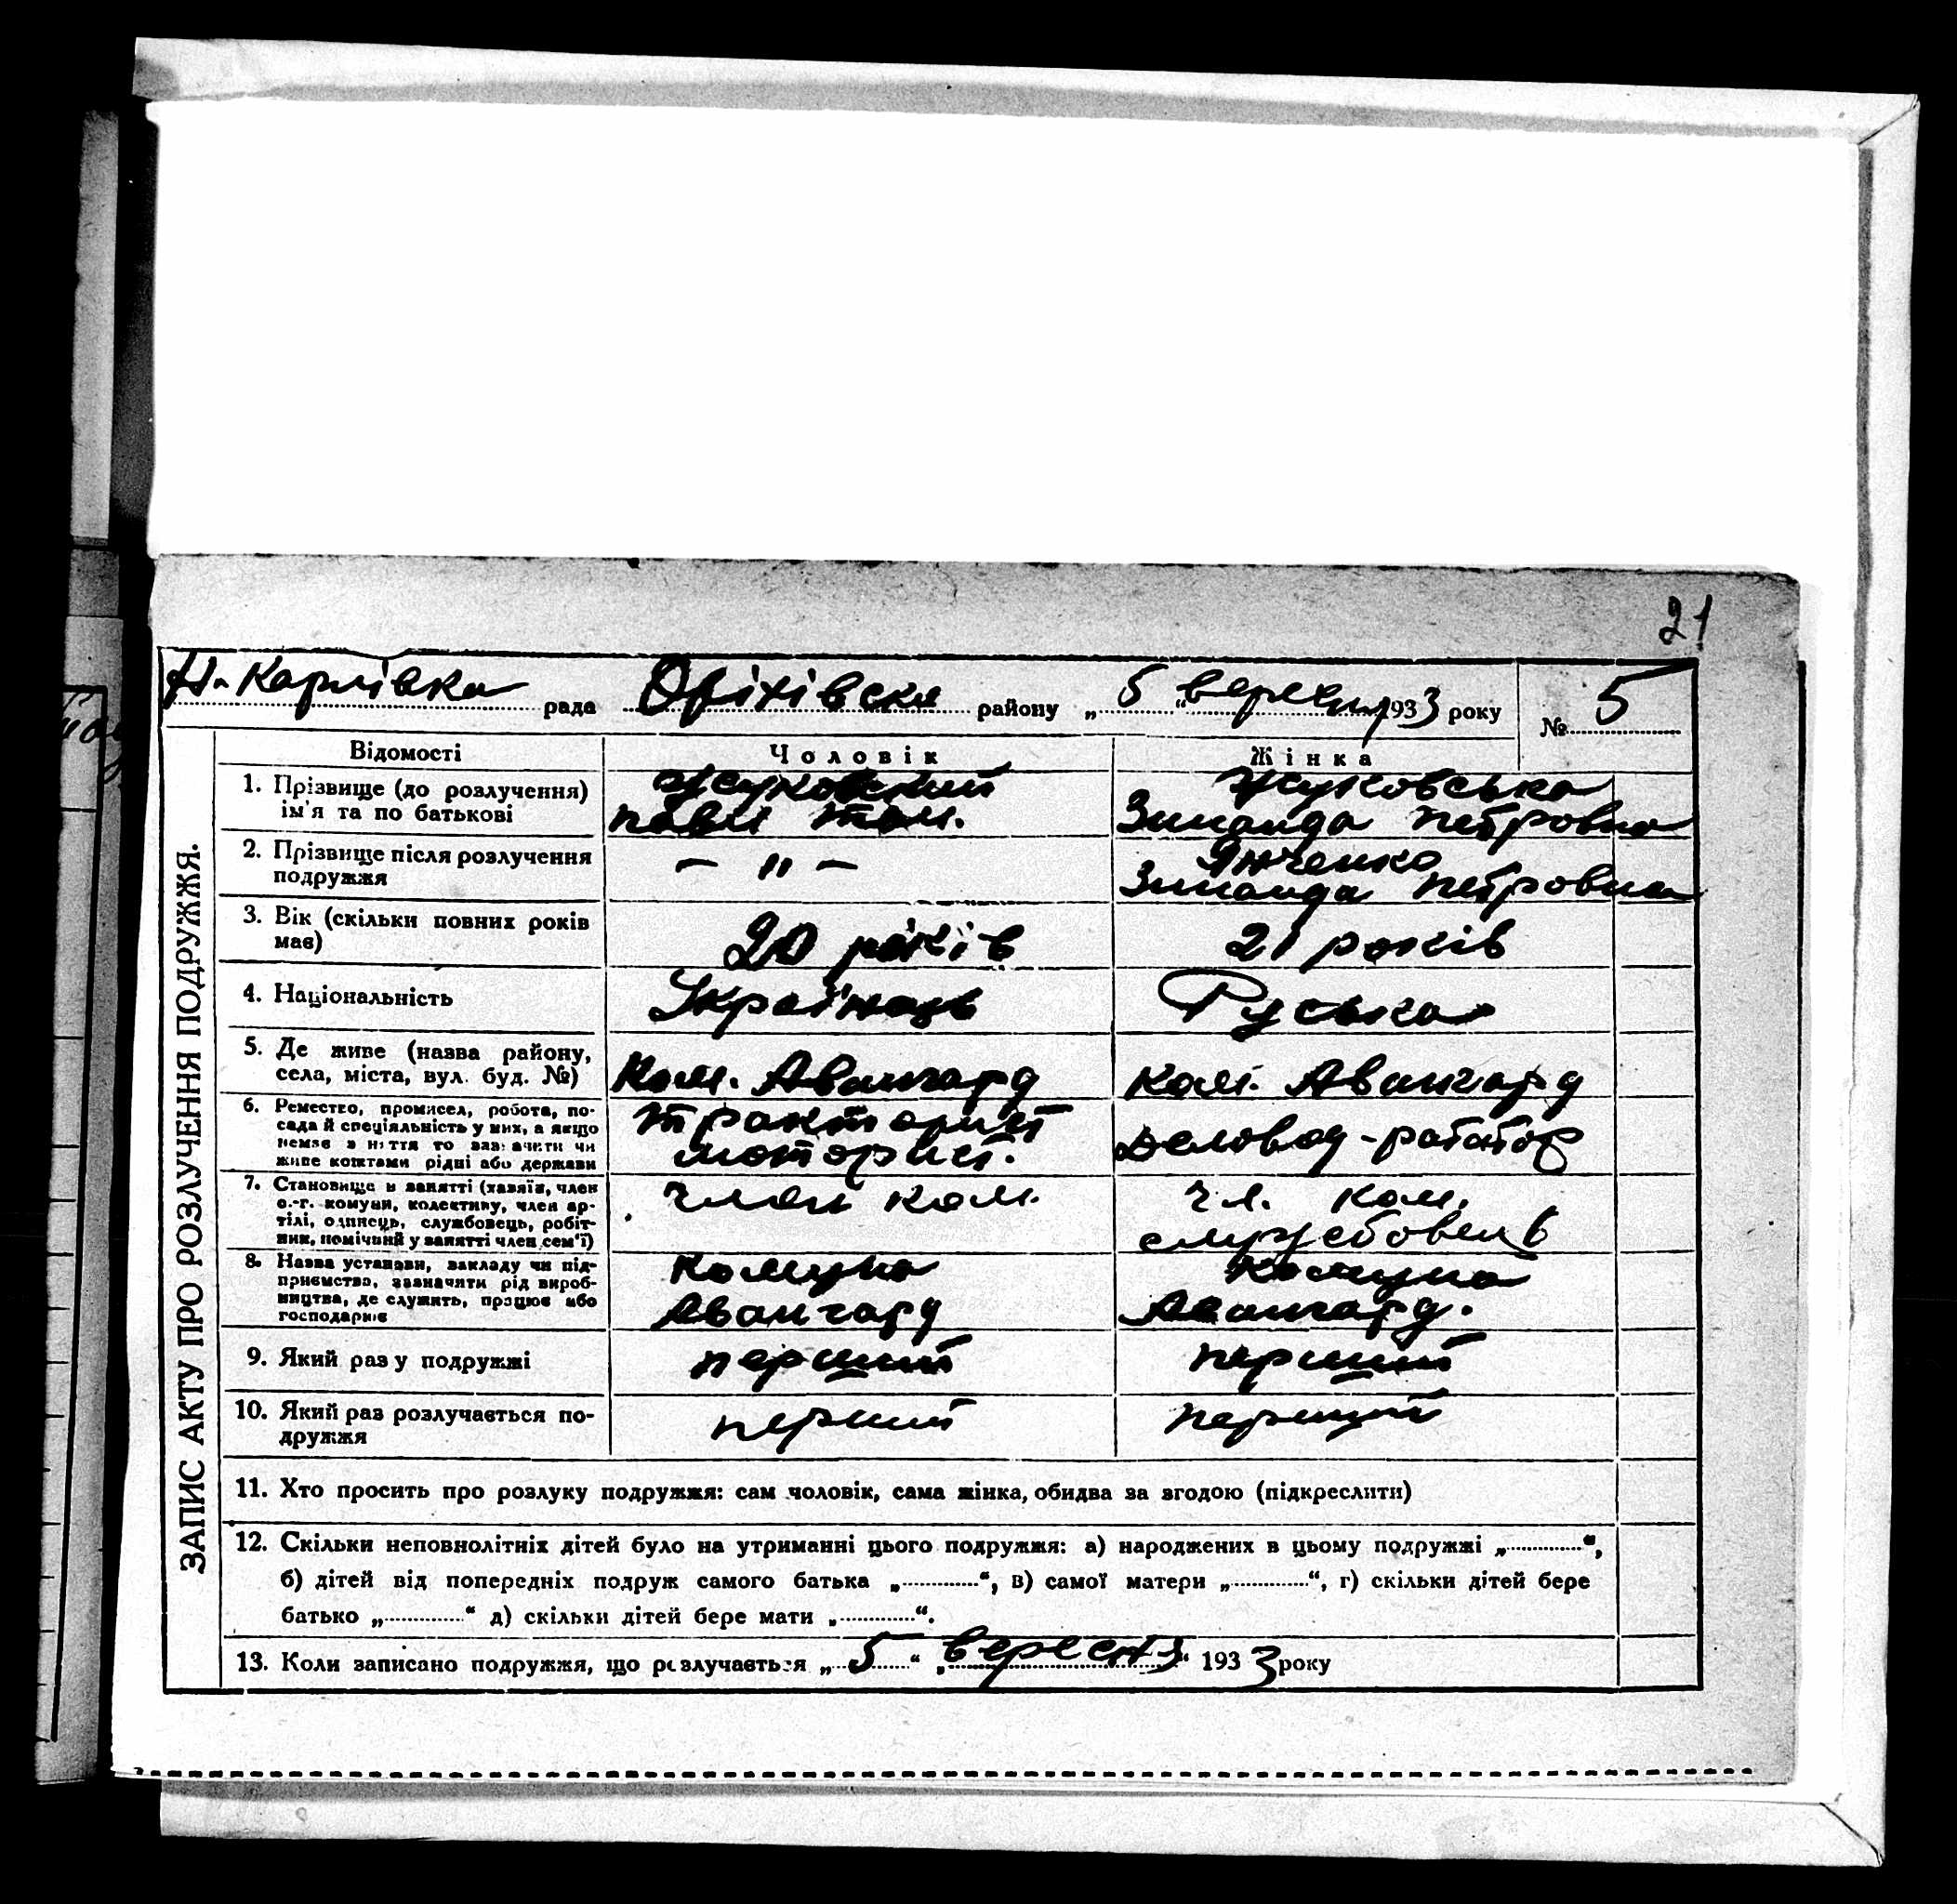 21
Н-Карлівка рада Оріхівська району „ 5 “ вересня 1933 року № 5
ЗАПИС АКТУ ПРО РОЗЛУЧЕННЯ ПОДРУЖЖЯ.
Відомості Чоловік Жінка
1. Прізвище (до розлучення) ім'я та по батькові
Жуковский
Жуковська
Зинаида Петровна
2. Прізвище після розлучення подружжя
– „ –
Янченко
Зинаида Петровна
3. Вік (скільки повних років має)
20 років
21 років
4. Національність
Українець
Руська
5. Де живе (назва району, села, міста, вул. буд. №)
Ком. Авангард
Ком. Авангард
6. Ремество, промисел, робота, по-
сада й спеціяльність у них, а якщо
немає з няття то зазначити чи
живе коштами рідні або держави
тракторист
моторист.
Деловод-
7. Становище в занятті (хазяїн, член
с.-г. комуни, колективу, член ар-
тілі, одинець, службовець, робіт-
ник, помічний у занятті член сем'ї)
член ком.
чл. ком.
службовець
8. Назва установи, закладу чи під-
приємства, зазначити рід вироб-
ництва, де служить, працює або
господарює
Комуна
Авангард
Комуна
Авангард.
9. Який раз у подружжі
перший
перший
10. Який раз розлучається по-
дружжя
перший
перший
11. Хто просить про розлуку подружжя: сам чоловік, сама жінка, обидва за згодою (підкреслити)
12. Скільки неповнолітніх дітей було на утриманні цього подружжя: а) народжених в цьому подружжі „ “,
б) дітей від попередніх подруж самого батька „ “, в) самої матери „ “, г) скільки дітей бере
батько „ “ д) скільки дітей бере мати „ “.
13. Коли записано подружжя, що розлучається „ 5 “ „ вересня “ 1933 року